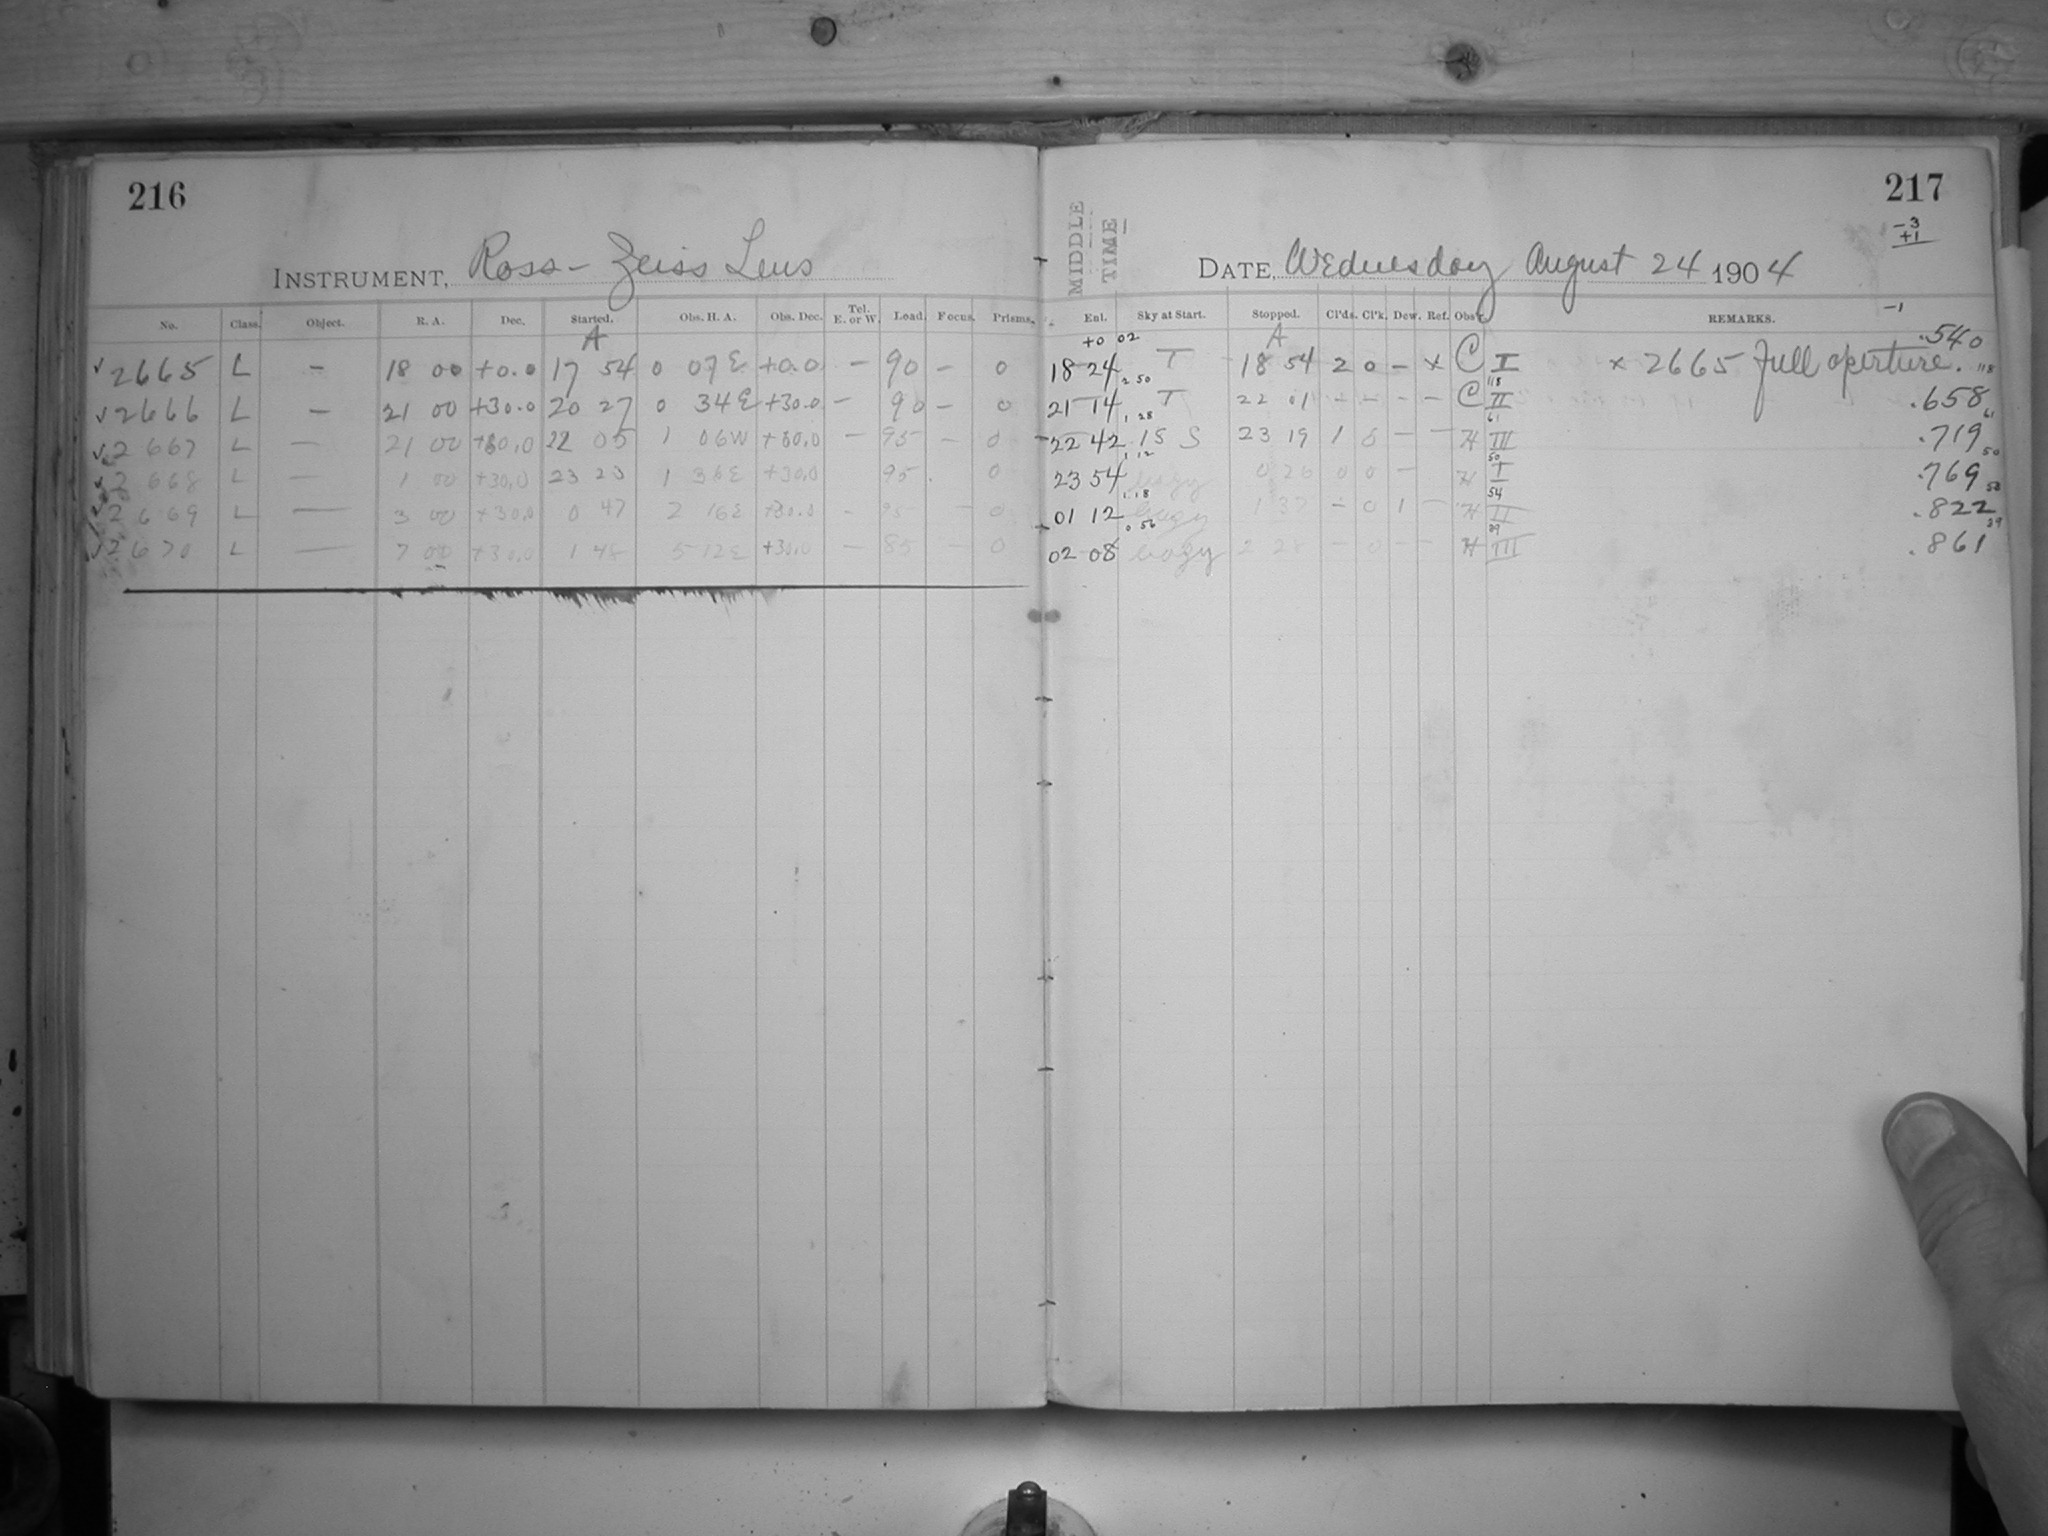 216
INSTRUMENT, Ross-Zeiss Lens
No. Class. Object. R. A. Dec. Started. Obs. H. A. Obs. Dec. Tel. E. or W. Load. Focus. Prisms.
A
√ 2665 L - 18 00 +0.0 17 54 0 07 E +0.0 - 90 - 0
√ 2666 L - 21 00 +30.0 20 27 0 34 E +30.0 - 90 - 0
√ 2667 L - 21 00 22 05 1 06W - 95 - 0
2668 L - 1 00 +30.0 23 23 1 36E +30.0 95 0
2669 L - 3 00 +30.0 0 47 2 16E +30.0 - 95 - 0
√ 2670 L - 7 00 +30.0 1 48 5 12E +30.0 - 85 - 0
217
-3
+1
MIDDLE TIME
DATE, Wednesday August 24 1904
-1
Enl. Sky at Start. Stopped. Cl'ds. Cl'k. Dew. Ref. Obs'r. REMARKS.
+0 02 A .540
18 24 T 18 54 2 0 - x C I x 2665 full aperture. 118
2 50 118
21 14 T 22 01 - - - - C II .658
1 28 61 61
22 42 .15 S 23 19 1 0 - - H III .719
1 12 50 50
23 54 hazy 0 26 0 0 - H I .769
1.18 54
01 12 hazy 1 37 - 0 1 - H II .822
0 56 39 39
02 08 hazy 2 28 - 0 - - H III .861